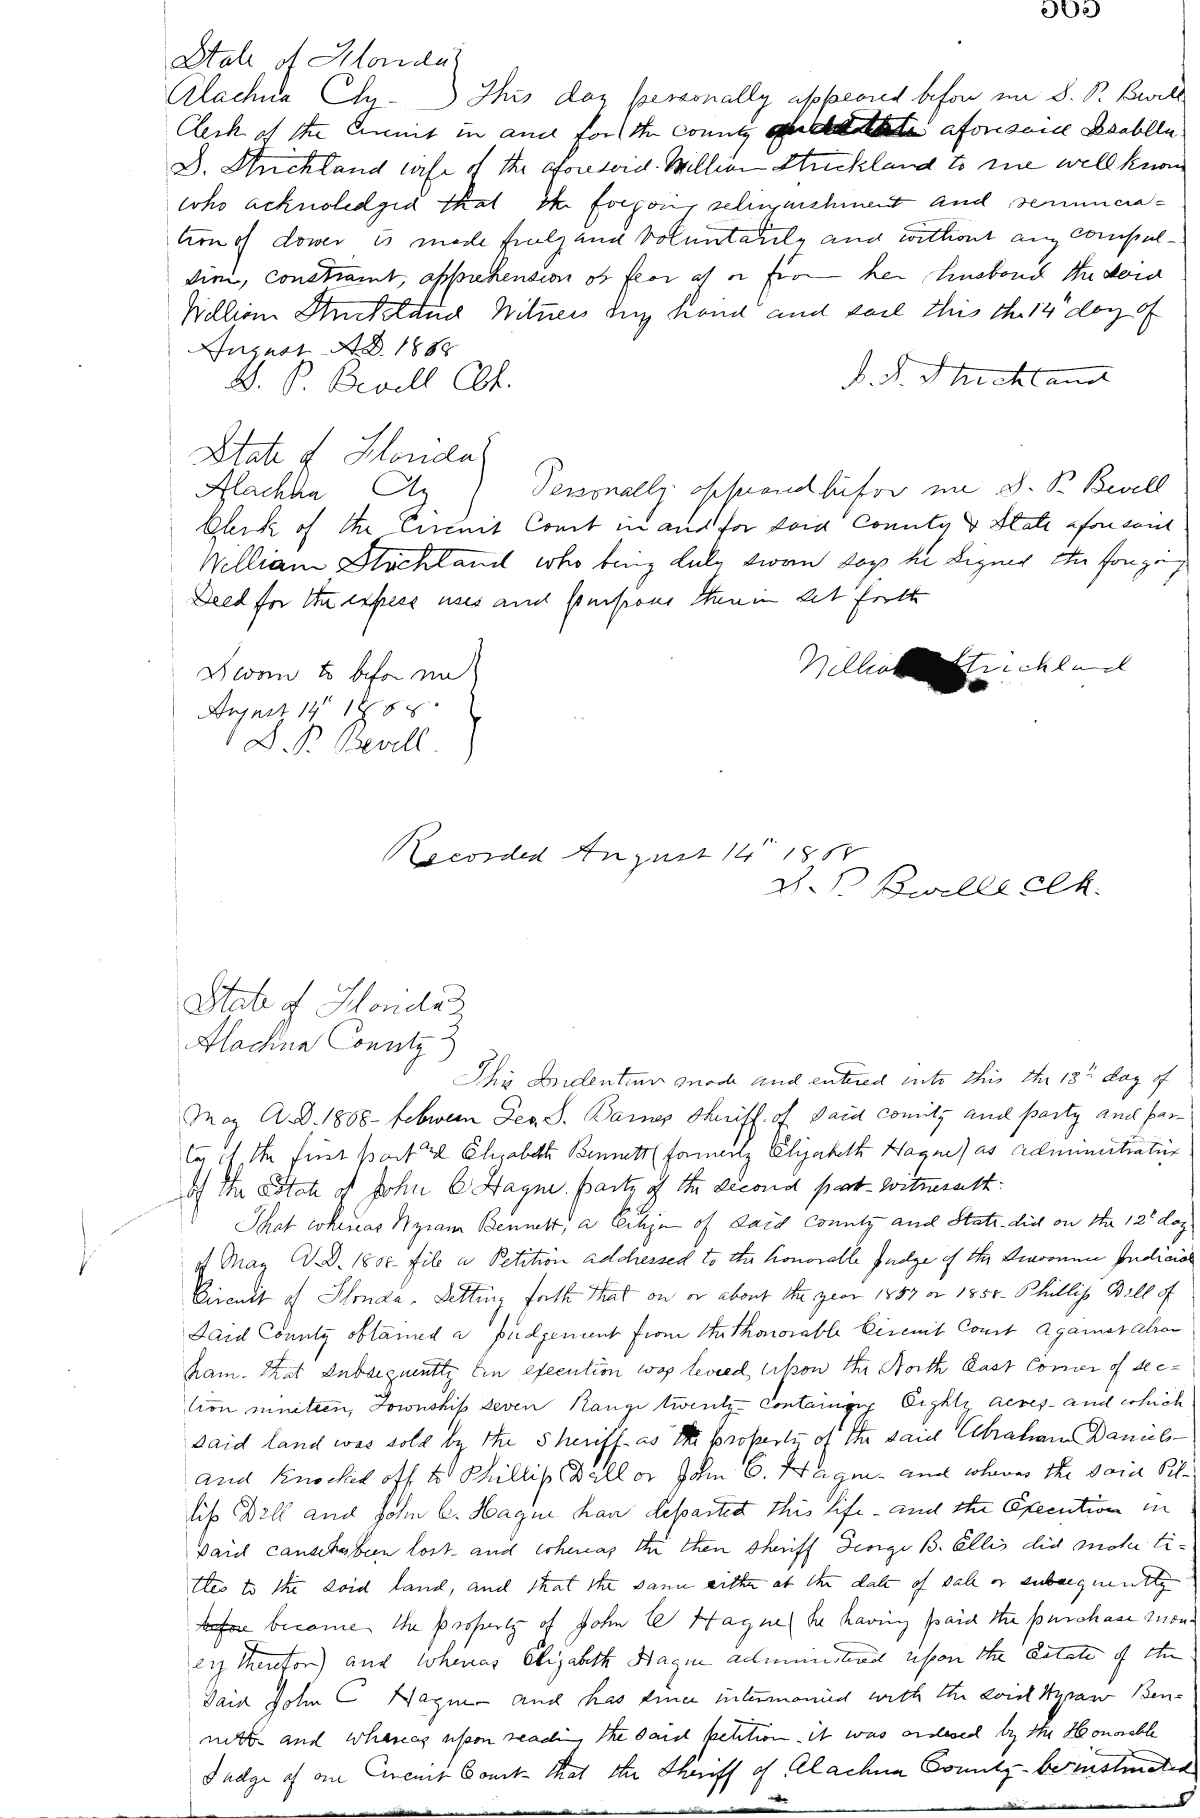 State of Florida
Alachua Cty - ) This day personally appeared before me S. P. Bevill
Clerk of the Circuit in and for the county aforesaid Isabella
S. Strickland wife of the aforesaid William Strickland to me well known
who acknoledged that the forgoing relinquishment and renuncia=
tion of dower is made freely and voluntarily and without any compul-
sion, constraint, apprehension or fear of or from her husband the said
William Strickland Witness my hand and seal this the 14" day of
August A.D. 1868
S. P. Bevill Clk.
I. S. Strickland
State of Florida
Alachua Cty ) Personally appeared before me S. P. Bevill
Clerk of the Circuit Court in and for said County & State aforesaid
William Strickland who being duly sworn says he signed the foregoing
Deed for the expess uses and purposes therein set forth
William Strickland
Sworn to before me
August 14" 1868.
S. P. Bevill.
Recorded August 14" 1868
S. P. Bevill Clk.
State of Florida
Alachua County
This Indenture made and entered into this the 13" day of
May A.D. 1868 - between Geo. S. Barnes Sheriff of said county and party and par-
ty of the first part and Elizabeth Bennett (formerly Elizabeth Hague) as administratrix
of the Estate of John C Hague party of the second part - witnesseth:
That whereas Hyram Bennett, a Citizen of said county and State - did on the 12" day
of May A.D. 1868 - file a Petition addressed to the honorable Judge of the Suwannee Judicial
Circuit of Florida. Setting forth that on or about the year 1857 or 1858 - Phillip Dell of
said County obtained a judgement from the honorable Circuit Court against Abra
ham. that subsequently an execution was levied upon the North East Corner of sec=
tion nineteen, Township seven Range twenty - containing Eighty acres - and which
said land was sold by the Sheriff - as the property of the said Abraham Daniels -
and Knocked off to Phillip Dell or John C. Hague - and wheras the said Pil-
lip Dell and John C. Hague have departed this life - and the Execution in
said cause has been lost - and whereas the then sheriff George B. Ellis did make ti=
tles to the said land, and that the same either at the date of sale or subsequently
before became the property of John C Hague (he having paid the purchase mon-
ey therefor) and whereas Elizabeth Hague administered upon the Estate of the
said John C Hague - and has since intermarried with the said Hyram Ben=
nett - and whereas upon reading the said petition - it was ordered by the Honorable
Judge of our Circuit Court - that the Sheriff of Alachua County - be instructed